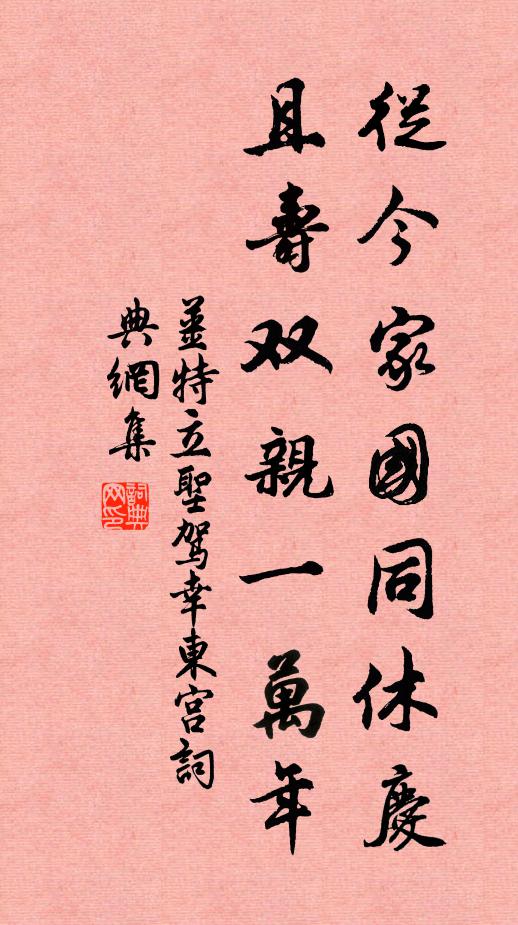 從今家國同休慶
且壽双親一萬年
姜特立聖駕幸東宮詞
典網集
詞典网印